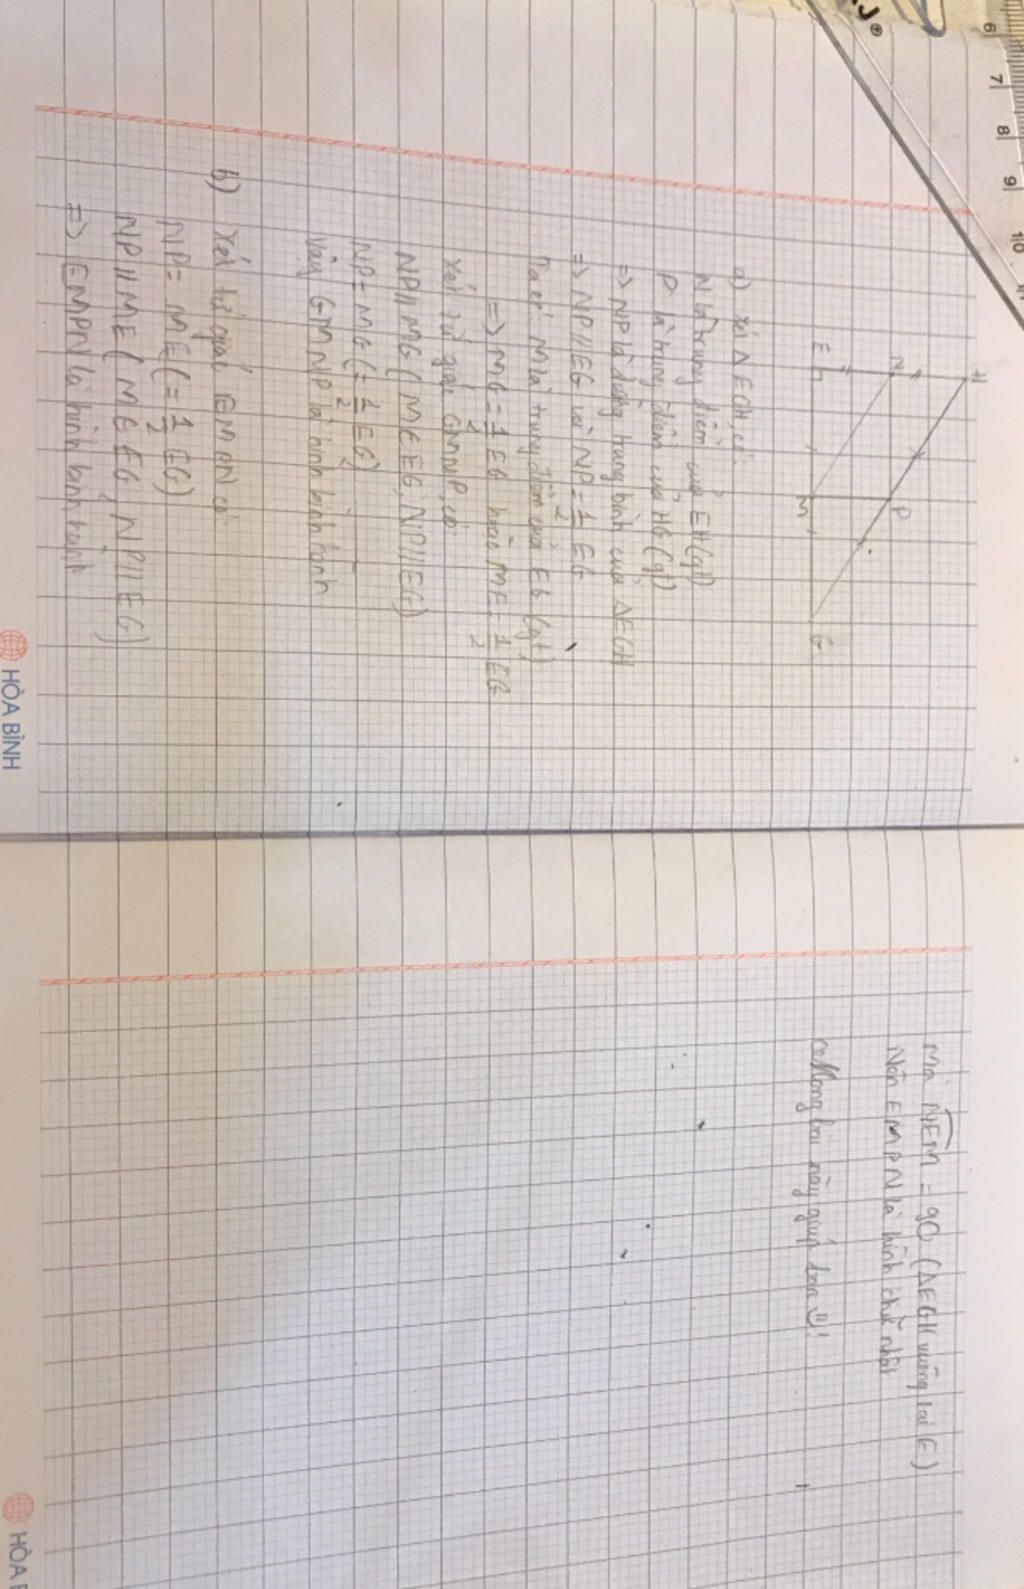 H
N
P
E
M
G
a) Xét ΔEGH, có:
N là trung điểm của EH (gt)
P là trung điểm của HG (gt)
=> NP là đường trung bình của ΔEGH
=> NP // EG và NP = 1/2 EG
Ta có: M là trung điểm của EG (gt)
=> MG = 1/2 EG hoặc ME = 1/2 EG
Xét tứ giác GMNP, có
NP // MG (M ∈ EG, NP // EG)
NP = MG (= 1/2 EG)
Vậy GMNP là hình bình hành
b) Xét tứ giác EMPN có:
NP = ME (= 1/2 EG)
NP // ME (M ∈ EG, NP // EG)
=> EMPN là hình bình hành
Mà NEM = 90 (ΔEGH vuông tại E)
Nên EMPN là hình chữ nhật
bài này giúp bạn
HÒA BÌNH
HÒA B
6 7 8 9 10